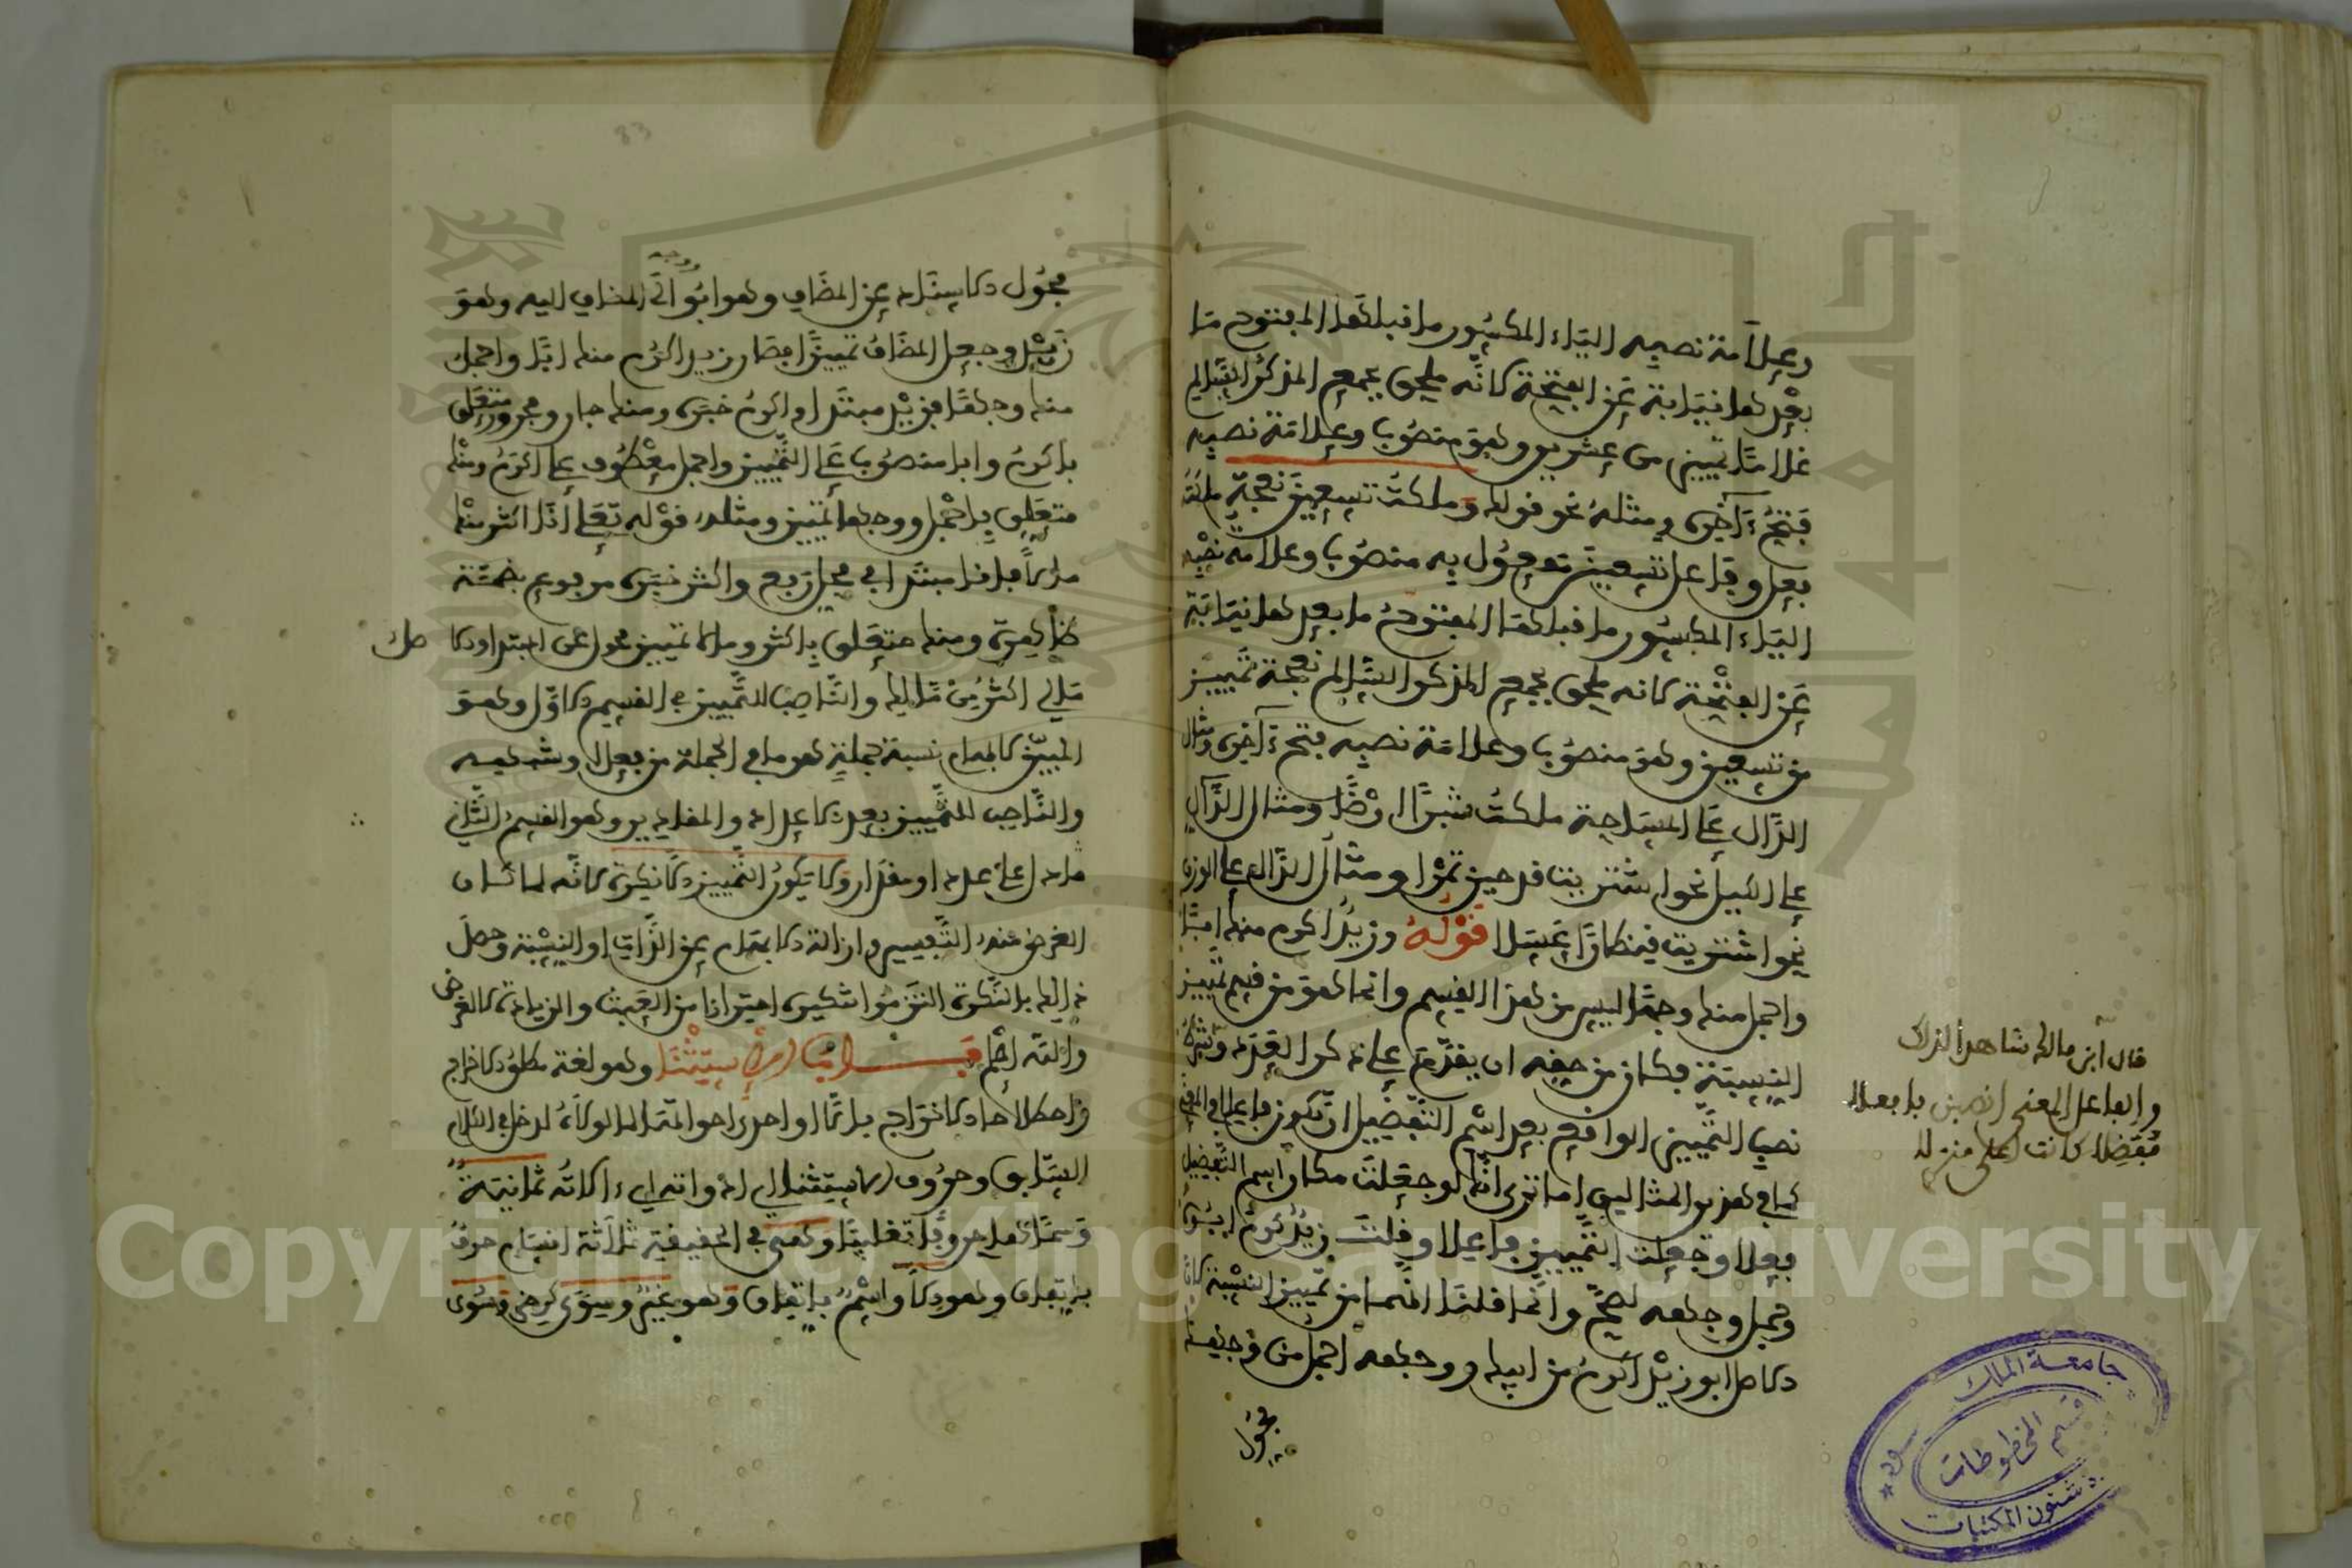 وعلامة نصبه الياء المكسور ما قبلها المفتوح ما
بعدها نيابة عن الفتحة لانه ملحق بجمع المذكر السالم
غلاما تمييز من عشرين وهو منصوب وعلامة نصبه
فتح ءاخره ومثله نحو قوله وملكت تسعين نعجة ملكت
فعل وفاعل تسعين مفعول به منصوب وعلامة نصبه
الياء المكسور ما قبلها المفتوح ما بعدها نيابة
عن الفتحة لانه ملحق بجمع المذكر السالم نعجة تمييز
من تسعين وهو منصوب وعلامة نصبه فتح ءاخره ومثال
الدال على المساحة ملكت شبرا ارضا ومثال الدال
على الكيل نحو اشتريت قدحين تمرا ومثال الدال على الوزن
نحو اشتريت قنطارا عسلا قوله وزيد اكرم منك ابا
واجمل منك وجها ليس من هذا القسم وانما هو من قسم تمييز
النسبة فكان من حقه ان يقدم على ذكر العدد وشرط
نصب التمييز الواقع بعد اسم التفضيل ان يكون فاعلا في المعنى
كما في هذين المثالين اما ترى انك لو جعلت مكان اسم التفضيل
فعلا وجعلت التمييز فاعلا وقلت زيد كرم ابوه
وجمل وجهه لصح وانما قلنا انهما من تمييز النسبة لان
الاصل ابو زيد اكرم من ابيك ووجهه اجمل من وجهك
محول
قال ابن مالك شاهدا لذلك
والفاعل المعنى انصبن بافعلا
مفضلا كانت اعلى منزلا
جامعة الملك سعود
قسم المخطوطات
شئون المكتبات
83
محول الاسناد عن المضاف وهو ابو الى المضاف اليه وهو
زيد وجعل المضاف تمييزا فصار زيد اكرم منك ابا واجمل
منك وجها فزيد مبتدا واكرم خبره ومنك جار ومجرور متعلق
باكرم وابا منصوب على التمييز واجمل معطوف على اكرم ومنك
متعلق باجمل ووجها تمييز ومثله قوله تعلى انا اكثر منك
مالا فانا مبتدا في محل رفع واكثر خبره مرفوع بضمة
ظاهرة ومنك متعلق باكثر ومالا تمييز محول عن المبتدا والا
صل
مالي اكثر من مالك والناصب للتمييز في القسم الاول وهو
المبين لابهام نسبة جملة هو ما في الجملة من فعل وشبهه
والناصب للتمييز بعد الاعداد والمقادير وهو القسم الثاني
ما دل على عدد او مقدار ولا يكون التمييز الا نكرة لانه لما كان
الغرض منه التفسير وازالة الابهام عن الذات او النسبة وحصل
ذلك بالنكرة التزموا تنكيره احترازا من العبث والزيادة لا لغرض
والله اعلم باب الاستثنا وهو لغة مطلق الاخراج
واصطلاحا الاخراج بالا او احدى اخواتها لما لولاه لدخل في الكلام
السابق وحروف الاستثنا اي ادواته اي ءالاته ثمانية
وسماها حروفا تغليبا وهي في الحقيقة ثلاثة اقسام حرف
باتفاق وهو الا واسم باتفاق وهو غير وسوى كرضى وسوى